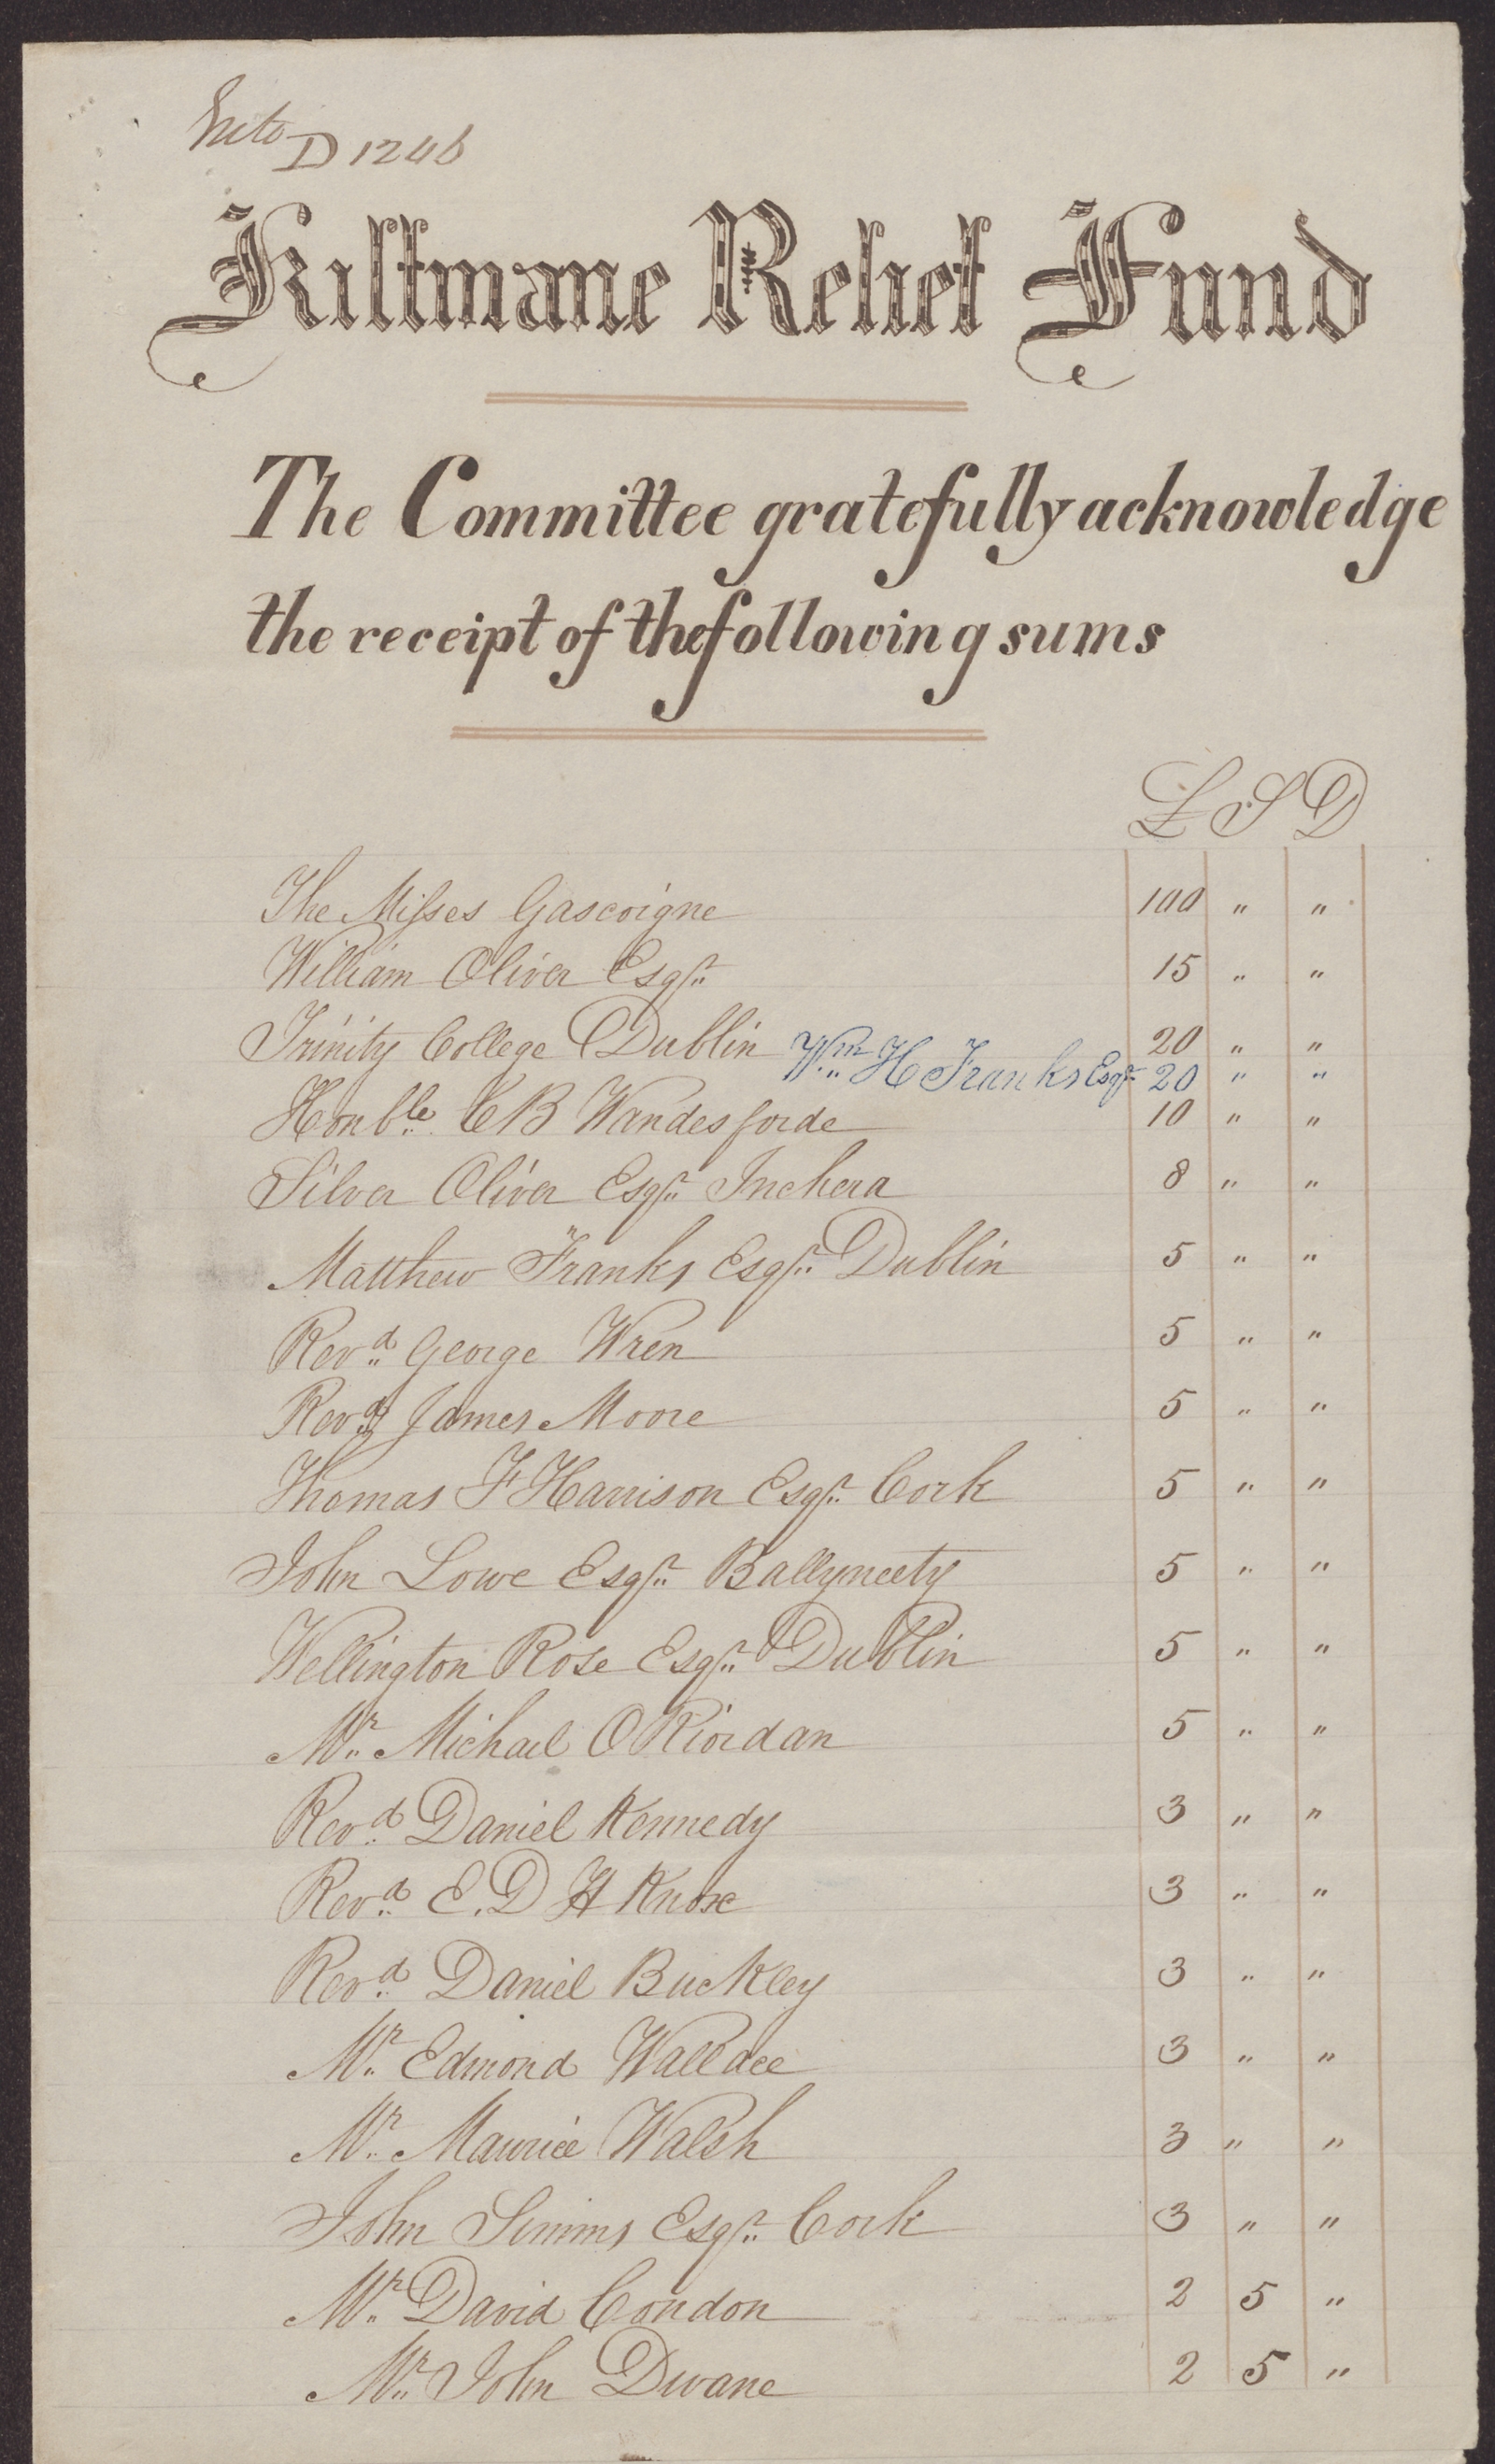 D 1246
Kilfmane Relief Fund
The Committee gratefully acknowledge
the receipt of the following sums
£ S D
The Misses Gascoigne 100 " "
William Oliver Esqr. 15 " "
Trinity College Dublin 20 " "
Wm. H Franks Esqr 20 " "
Honble. C B Wandesforde 10 " "
Silver Oliver Esqr. Inchera 8 " "
Matthew Franks Esqr. Dublin 5 " "
Revd. George Wren 5 " "
Revd. James Moore 5 " "
Thomas F Harrison Esqr. Cork 5 " "
John Lowe Esqr. Ballyneety 5 " "
Wellington Rose Esqr. Dublin 5 " "
Mr. Michael O Riordan 5 " "
Revd. Daniel Kennedy 3 " "
Revd. E. D H Knox 3 " "
Revd. Daniel Buckley 3 " "
Mr. Edmond Wallace 3 " "
Mr. Maurice Walsh 3 " "
John Simms Esqr. Cork 3 " "
Mr. David Condon 2 5 "
Mr. John Dwane 2 5 "